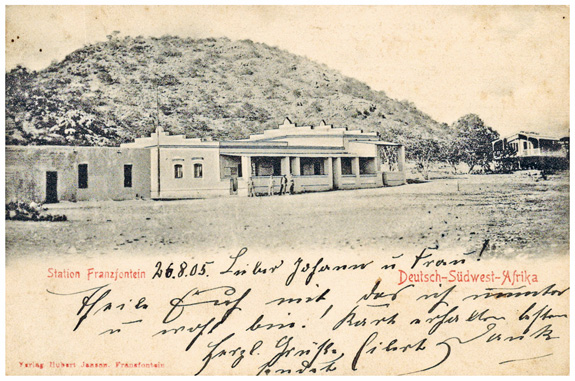 Station Franzfontein 26.8.05. Lieber Johann u Frau!
Deutsch-Südwest-Afrika
Theile Euch mit das ich munter
u wohl bin! Karte erhalten besten
Dank
Herzl. Grüße
sendet Eilert
Verlag Hubert Janson, Franzfontein